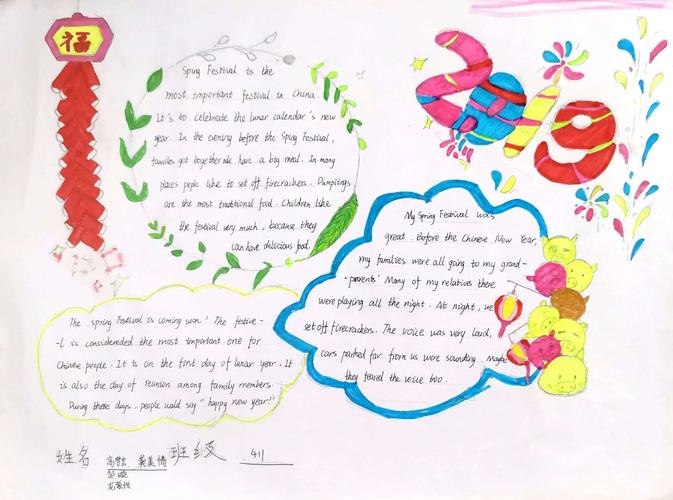 福
2019
Sping Festival is the
most important festival in China.
It's to celebrate the lunar calendar's new
year. In the evening before the Sping Festival,
families get together and have a big meal. In many
places peple like to set off firecrackers. Dumplings
are the most traditional food. Children like
the festival very much, because they
can have delicious food.
My Spring Festival was
great. Before the Chinese New Year,
my families were all going to my grand-
-parents' Many of my relatives there
were playing all the night. At night, we
set off firecrackers. The voice was very loud,
cars parked far from us were sounding. Maybe
they feared the voice too.
The spring Festival is coming soon! The festive-
-l is considereded the most important one for
Chinese people. It is on the first day of lunar year. It
is also the day of reunion among family members.
During these days, people wold say "happy new year!"
姓名 班级 411